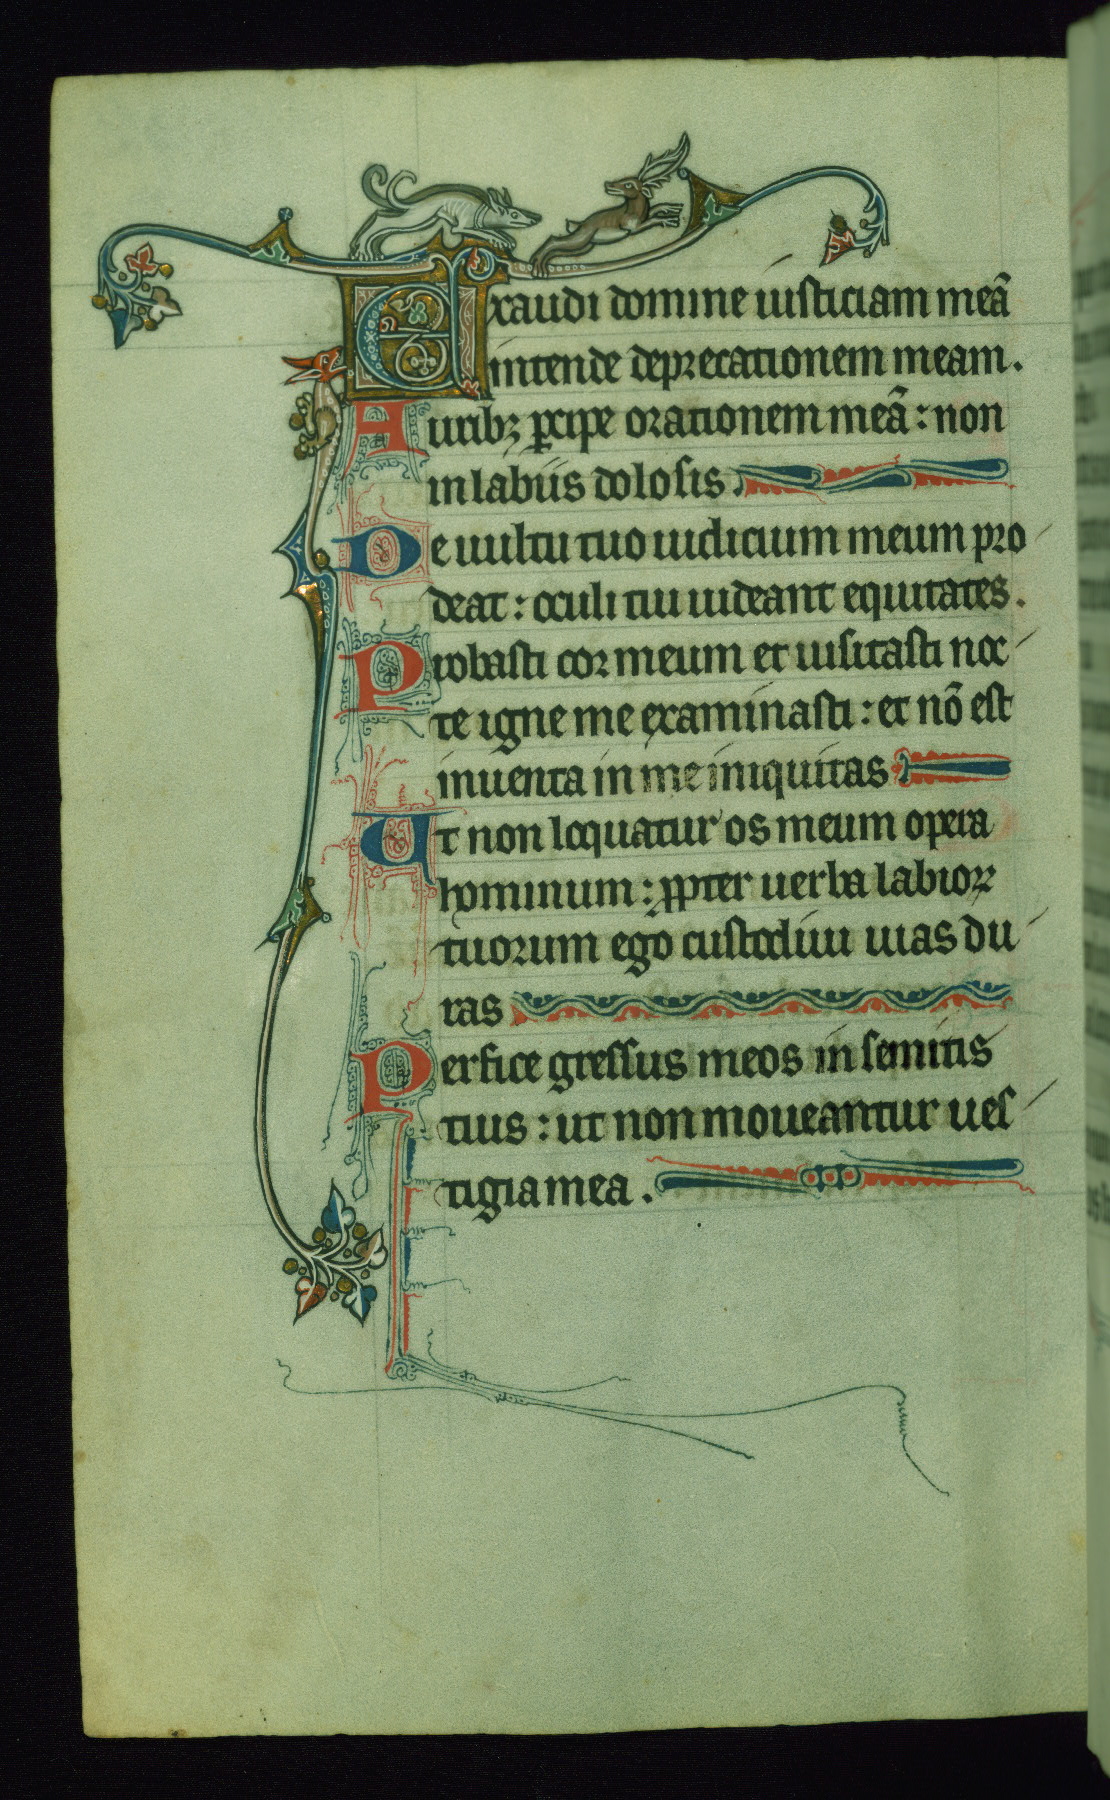 Exaudi domine iusticiam meā
intende deprecationem meam.
Auribꝫ ꝑcipe orationem meā: non
in labiis dolosis.
De uultu tuo iudicium meum pro
deat: oculi tui uideant equitates.
Probasti cor meum et uisitasti noc
te igne me examinasti: et nō est
inuenta in me iniquitas.
Ut non loquatur os meum opera
hominum: ꝓpter uerba labioꝝ
tuorum ego custodiui uias du
ras
Perfice gressus meos in semitis
tuis: ut non moueantur ues
tigia mea.